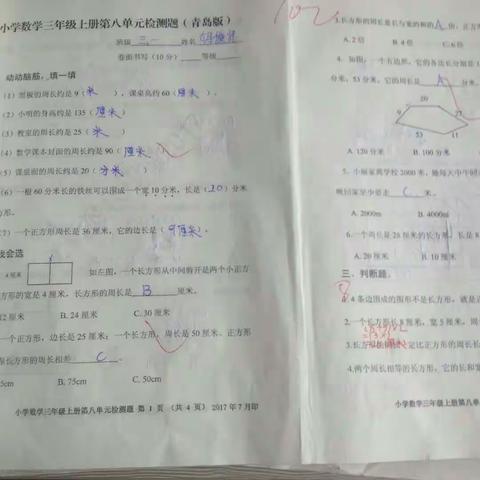 小学数学三年级上册第八单元检测题（青岛版）
班级 三.一 姓名
卷面书写（10分） 等级
动动脑筋，填一填
（1）黑板的周长约是9（米），课桌高约60（厘米）。
（2）小明的身高约是135（厘米）
（3）教室的周长约是25（米）
（4）数学课本封面的周长约是90（厘米）
（5）课桌面的周长约是20（分米）
（6）一根60分米长的铁丝可以围成一个宽10分米，长是（20）分米
方形。
（7）一个正方形周长是36厘米，它的边长是（9厘米）。
我会选
4厘米 如左图，一个长方形从中间剪开是两个小正方
方形的宽是4厘米，长方形的周长是 B 厘米。
12厘米 B. 24厘米 C. 30厘米
一个正方形，边长是25厘米；一个长方形，周长是50厘米。正方形
长方形的周长相差 C 。
5cm B. 75cm C. 50cm
小学数学三年级上册第八单元检测题 第 1 页 （共 4 页） 2017年7月印
3.长方形的周长是长与宽的和的 A 倍，正方形
A. 2倍 B. 4倍 C. 6倍
4. 如图，一个五边形，它的各边长分别是
分米，53分米，它的周长是 A
20
9
53
17
A. 120分米 B. 100分米
5. 小丽家离学校2000米，她每天中午时
晚回家至少要走 C 米。
A. 2000m B. 4000m
6.一个周长是26厘米的长方形，长是8
A. 20厘米 B. 10厘米
三、判断题。
1. 4条边围成的图形不是长方形，就是正
2. 一个长方形长8厘米，宽5厘米，周
3.长方形的周长一定比正方形的周长长
4.两个周长相等的长方形，它的长和宽
小学数学三年级上册第八单